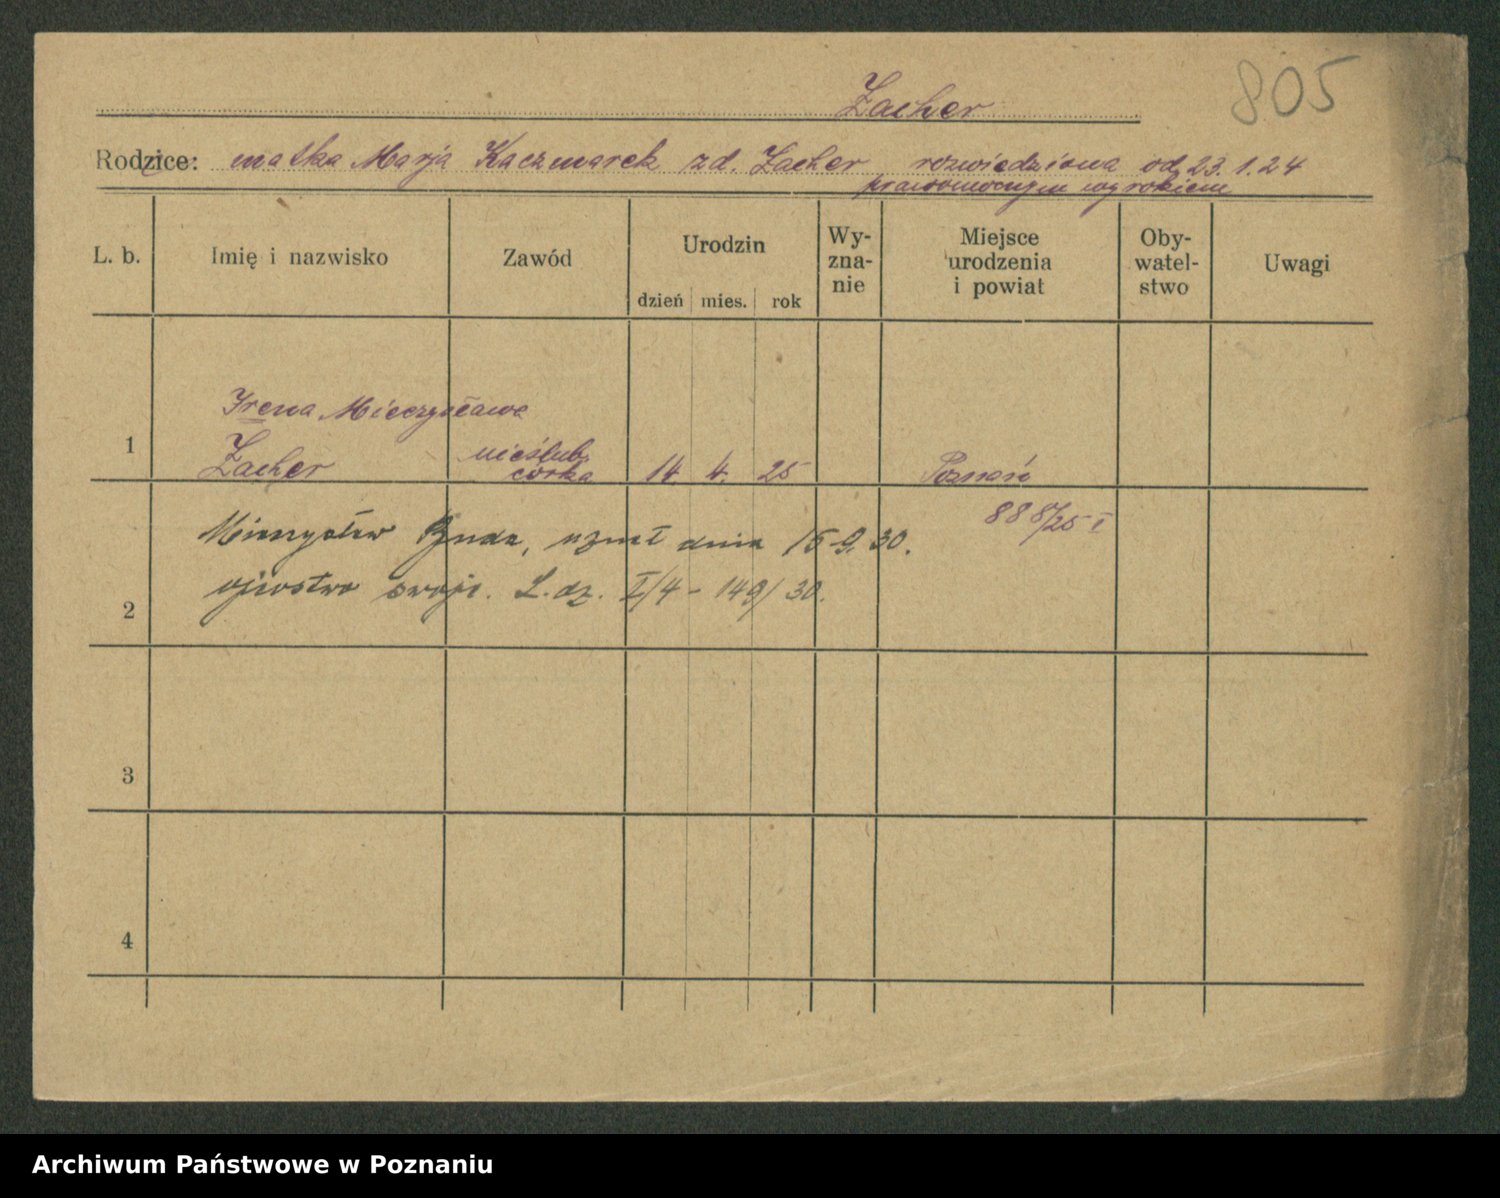 805
Zacher
Rodzice: matka Marja Kaczmarek zd. Zacher rozwiedziona od 23.1.24
prawomocnym wyrokiem
L. b. Imię i nazwisko Zawód Urodzin Wy-zna-nie Miejsce urodzenia i powiat Oby-watel-stwo Uwagi
dzień mies. rok
Irena Mieczysława
1 Zacher nieślub. córka 14 4. 25 Poznań
888/25 I
Mieczysław uznał dnia 15.9.30.
2 ojcostwo swoje. L.dz. I/4 - 149/30.
3
4
Archiwum Państwowe w Poznaniu